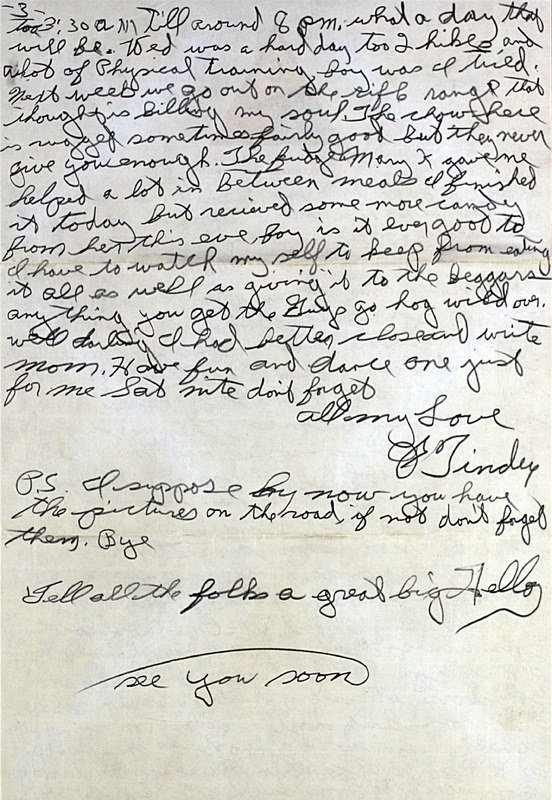 -3-
too 3:30 a.m till around 8 pm. what a day that
will be. Wed was a hard day too 2 hikes and
a lot of Physical training boy was I tried.
next week we go out on the rifle range that
thought is killing my soul. The chow here
is sometimes fairly good but they never
give you enough. The fudge Mary K gave me
helped a lot in between meals I finished
it today but recieved some more candy
from her this eve boy is it ever good to
I have to watch my self to keep from eating
it all as well as giving it to the beggars
anything you get the Guys go hog wild over.
well darling I had better close and write
mom. Have fun and dance one just
for me Sat nite don't forget
all my Love
P.S. I suppose by now you have
the pictures on the road, if not don't forget
them. Bye
Tell all the folks a great big Hello
see you soon